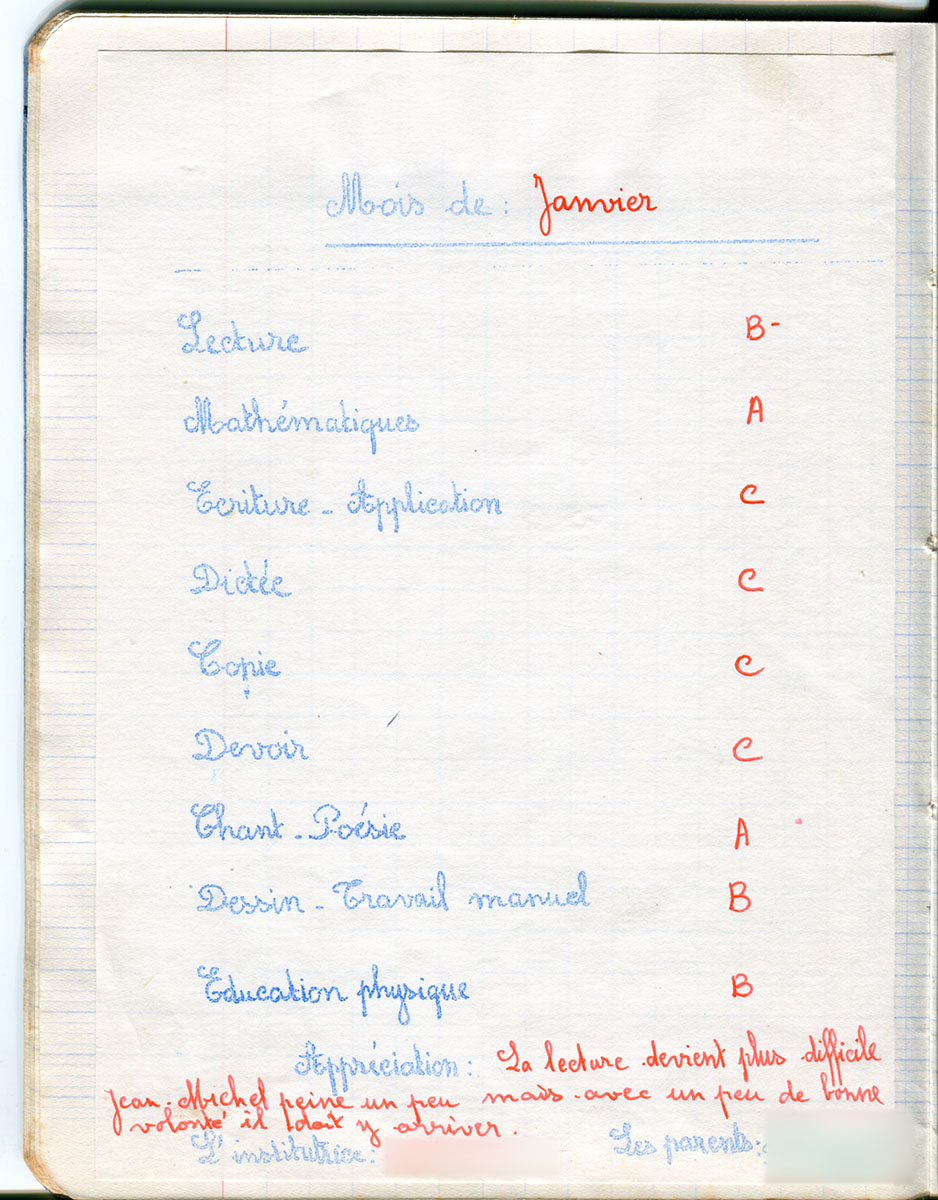 Mois de : Janvier
Lecture B-
Mathématiques A
Ecriture - Application C
Dictée C
Copie C
Devoir C
Chant - Poésie A
Dessin - Travail manuel B
Education physique B
Appréciation : La lecture devient plus difficile
Jean-Michel peine un peu mais avec un peu de bonne
volonté il doit y arriver.
L'institutrice : Les parents :